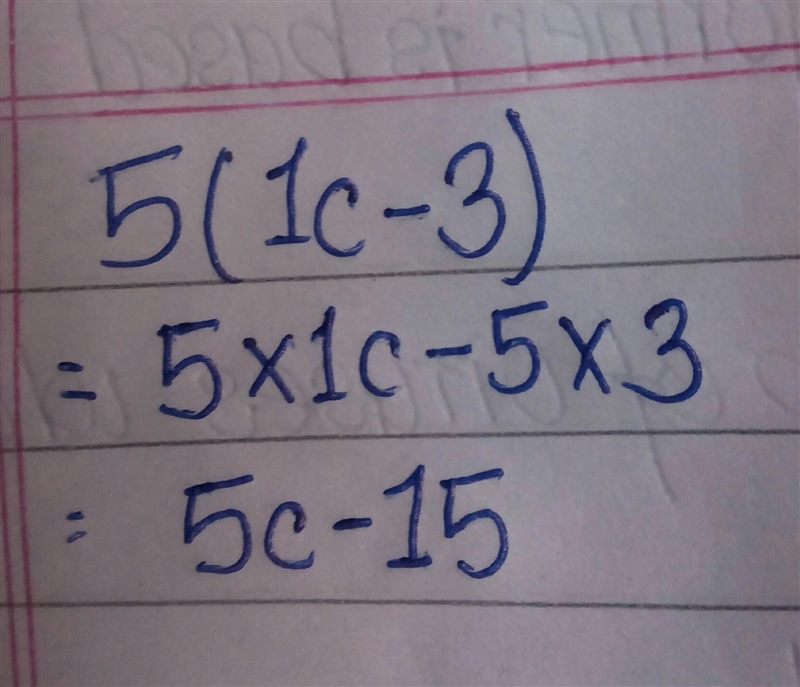 5(1c-3)
= 5×1c-5×3
= 5c-15